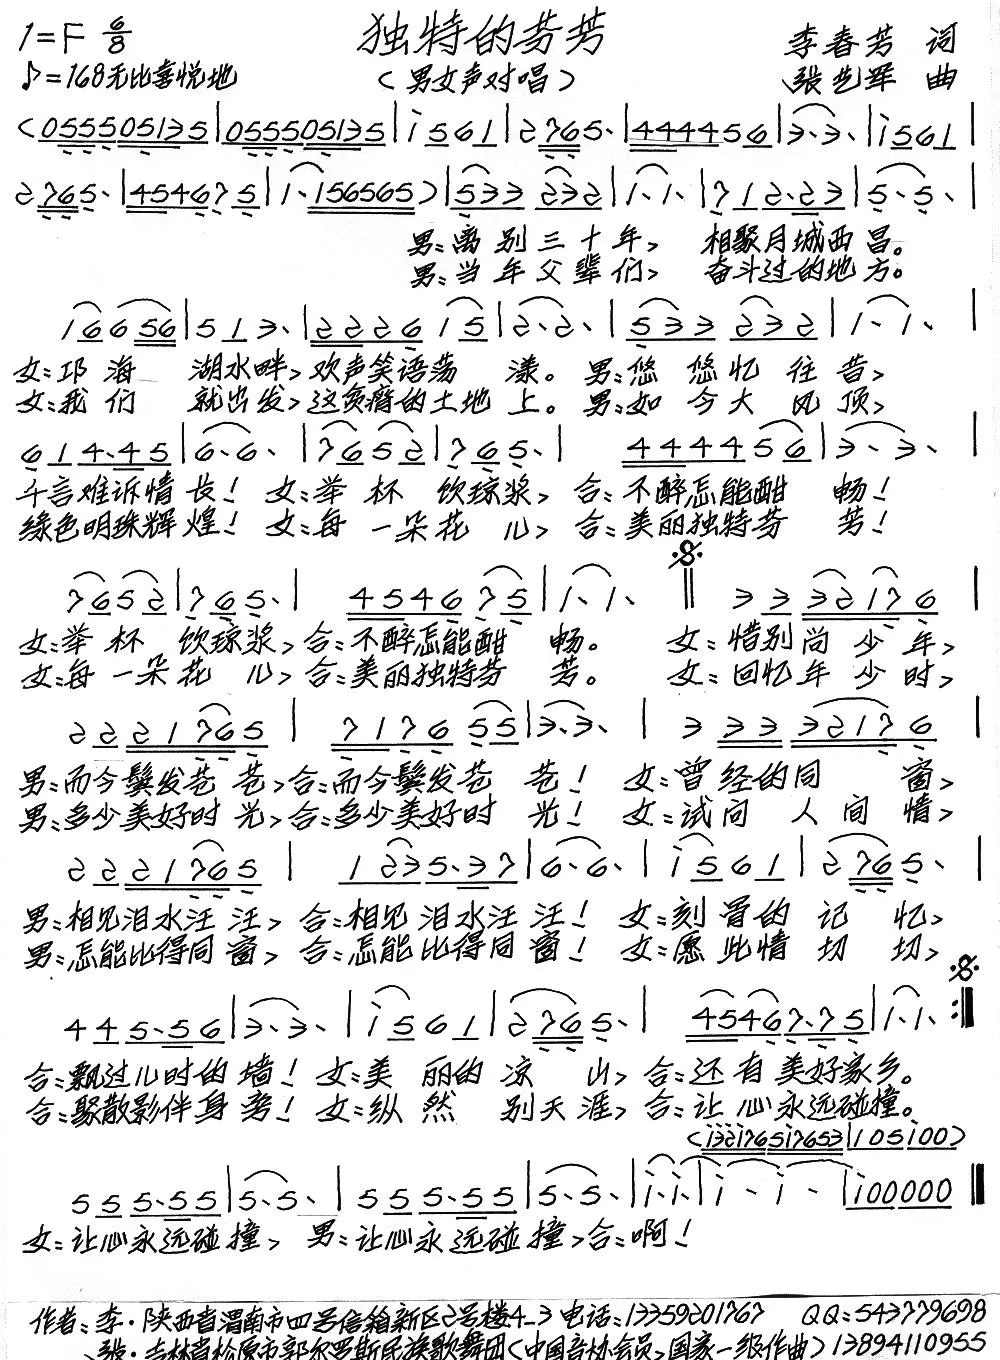 1=F 6/8
独特的芬芳
李春芳 词
♪=168无比喜悦地
(男女声对唱)
张艺军 曲
(055505135|055505135|i561|2765·|444456|3·3·|i561|
2765·|454675|1·156565)|533 232|1·1·|712·23|5·5·|
男:离别三十年, 相聚月城西昌。
男:当年父辈们, 奋斗过的地方。
16656|513·|2226 15|2·2·|533 232|1·1·|
女:邛海 湖水畔,欢声笑语荡 漾。 男:悠悠忆往昔,
女:我们 就出发,这贫瘠的土地上。 男:如今大风顶,
614·45|6·6·|7652|765·| 444456|3·3·|
千言难诉情长! 女:举杯 饮琼浆, 合:不醉怎能酣 畅!
绿色明珠辉煌! 女:每一朵花 儿, 合:美丽独特芬 芳!
7652|765·| 454675|1·1·‖ 3332176|
女:举杯 饮琼浆,合:不醉怎能酣 畅。 女:惜别尚少年,
女:每一朵花 儿,合:美丽独特芬 芳。 女:回忆年少时,
2221765| 717655|3·3·| 33332176|
男:而今鬓发苍苍,合:而今鬓发苍 苍! 女:曾经的同 窗,
男:多少美好时光,合:多少美好时 光! 女:试问 人间情,
2221765| 1235·37|6·6·| i561|2765·|
男:相见泪水汪汪, 合:相见泪水汪汪! 女:刻骨的记 忆,
男:怎能比得同窗, 合:怎能比得同窗! 女:愿此情切 切,
445·56|3·3·|i561|2765·| 45467·75|1·1·:‖
合:飘过儿时的墙! 女:美丽的凉 山, 合:还有美好家乡。
合:聚散影伴身旁! 女:纵然 别天涯, 合:让心永远碰撞。
(i32i765i7653|105i00)
555·55|5·5·|555·55|5·5·|i·i·|i-i-|i00000‖
女:让心永远碰撞, 男:让心永远碰撞,合:啊!
作者:李·陕西省渭南市四号信箱新区2号楼4-3 电话:13359201767 QQ:543779698
张·吉林省松原市郭尔罗斯民族歌舞团(中国音协会员,国家一级作曲)13894110955